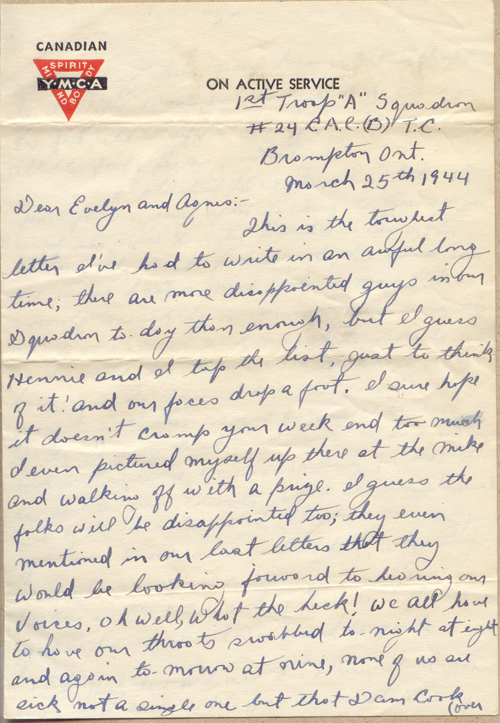 CANADIAN
SPIRIT
MIND
BODY
Y·M·C·A
ON ACTIVE SERVICE
1st Troop "A" Squadron
#24 C.A.C.(B) T.C.
Brampton Ont.
March 25th 1944
Dear Evelyn and Agnes:-
This is the toughest
letter I've had to write in an awful long
time; there are more disappointed guys in our
Squadron to-day than enough, but I guess
Hennie and I top the list, just to think
of it! and our faces drop a foot. I sure hope
it doesn't cramp your week end too much
I even pictured myself up there at the mike
and walking off with a prize. I guess the
folks will be disappointed too; they even
mentioned in our last letters that they
would be looking forward to hearing our
voices, oh well, what the heck! we all have
to have our throats swabbed to-night at eight
and again to-morrow at nine, none of us are
sick not a single one but that Dam Cook
(over